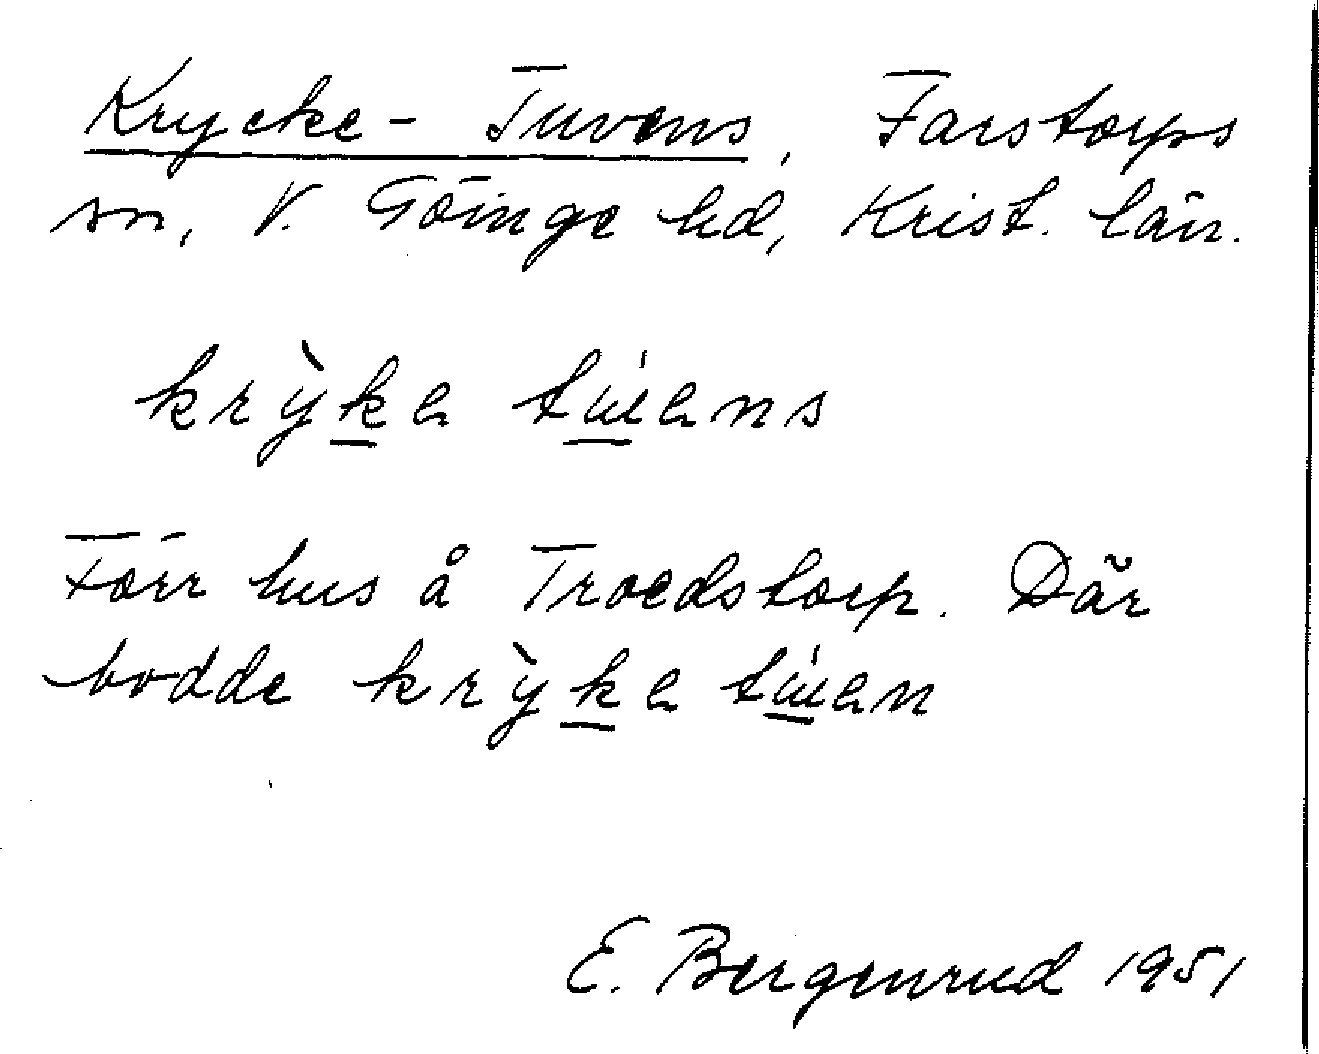 Krycke-Tuvens, Farstorps
sn, V. Göinge hd, Krist. län.
krỳka túans
Förr hus å Troedstorp. Där
bodde krỳka túan
E. Bergenrud 1951